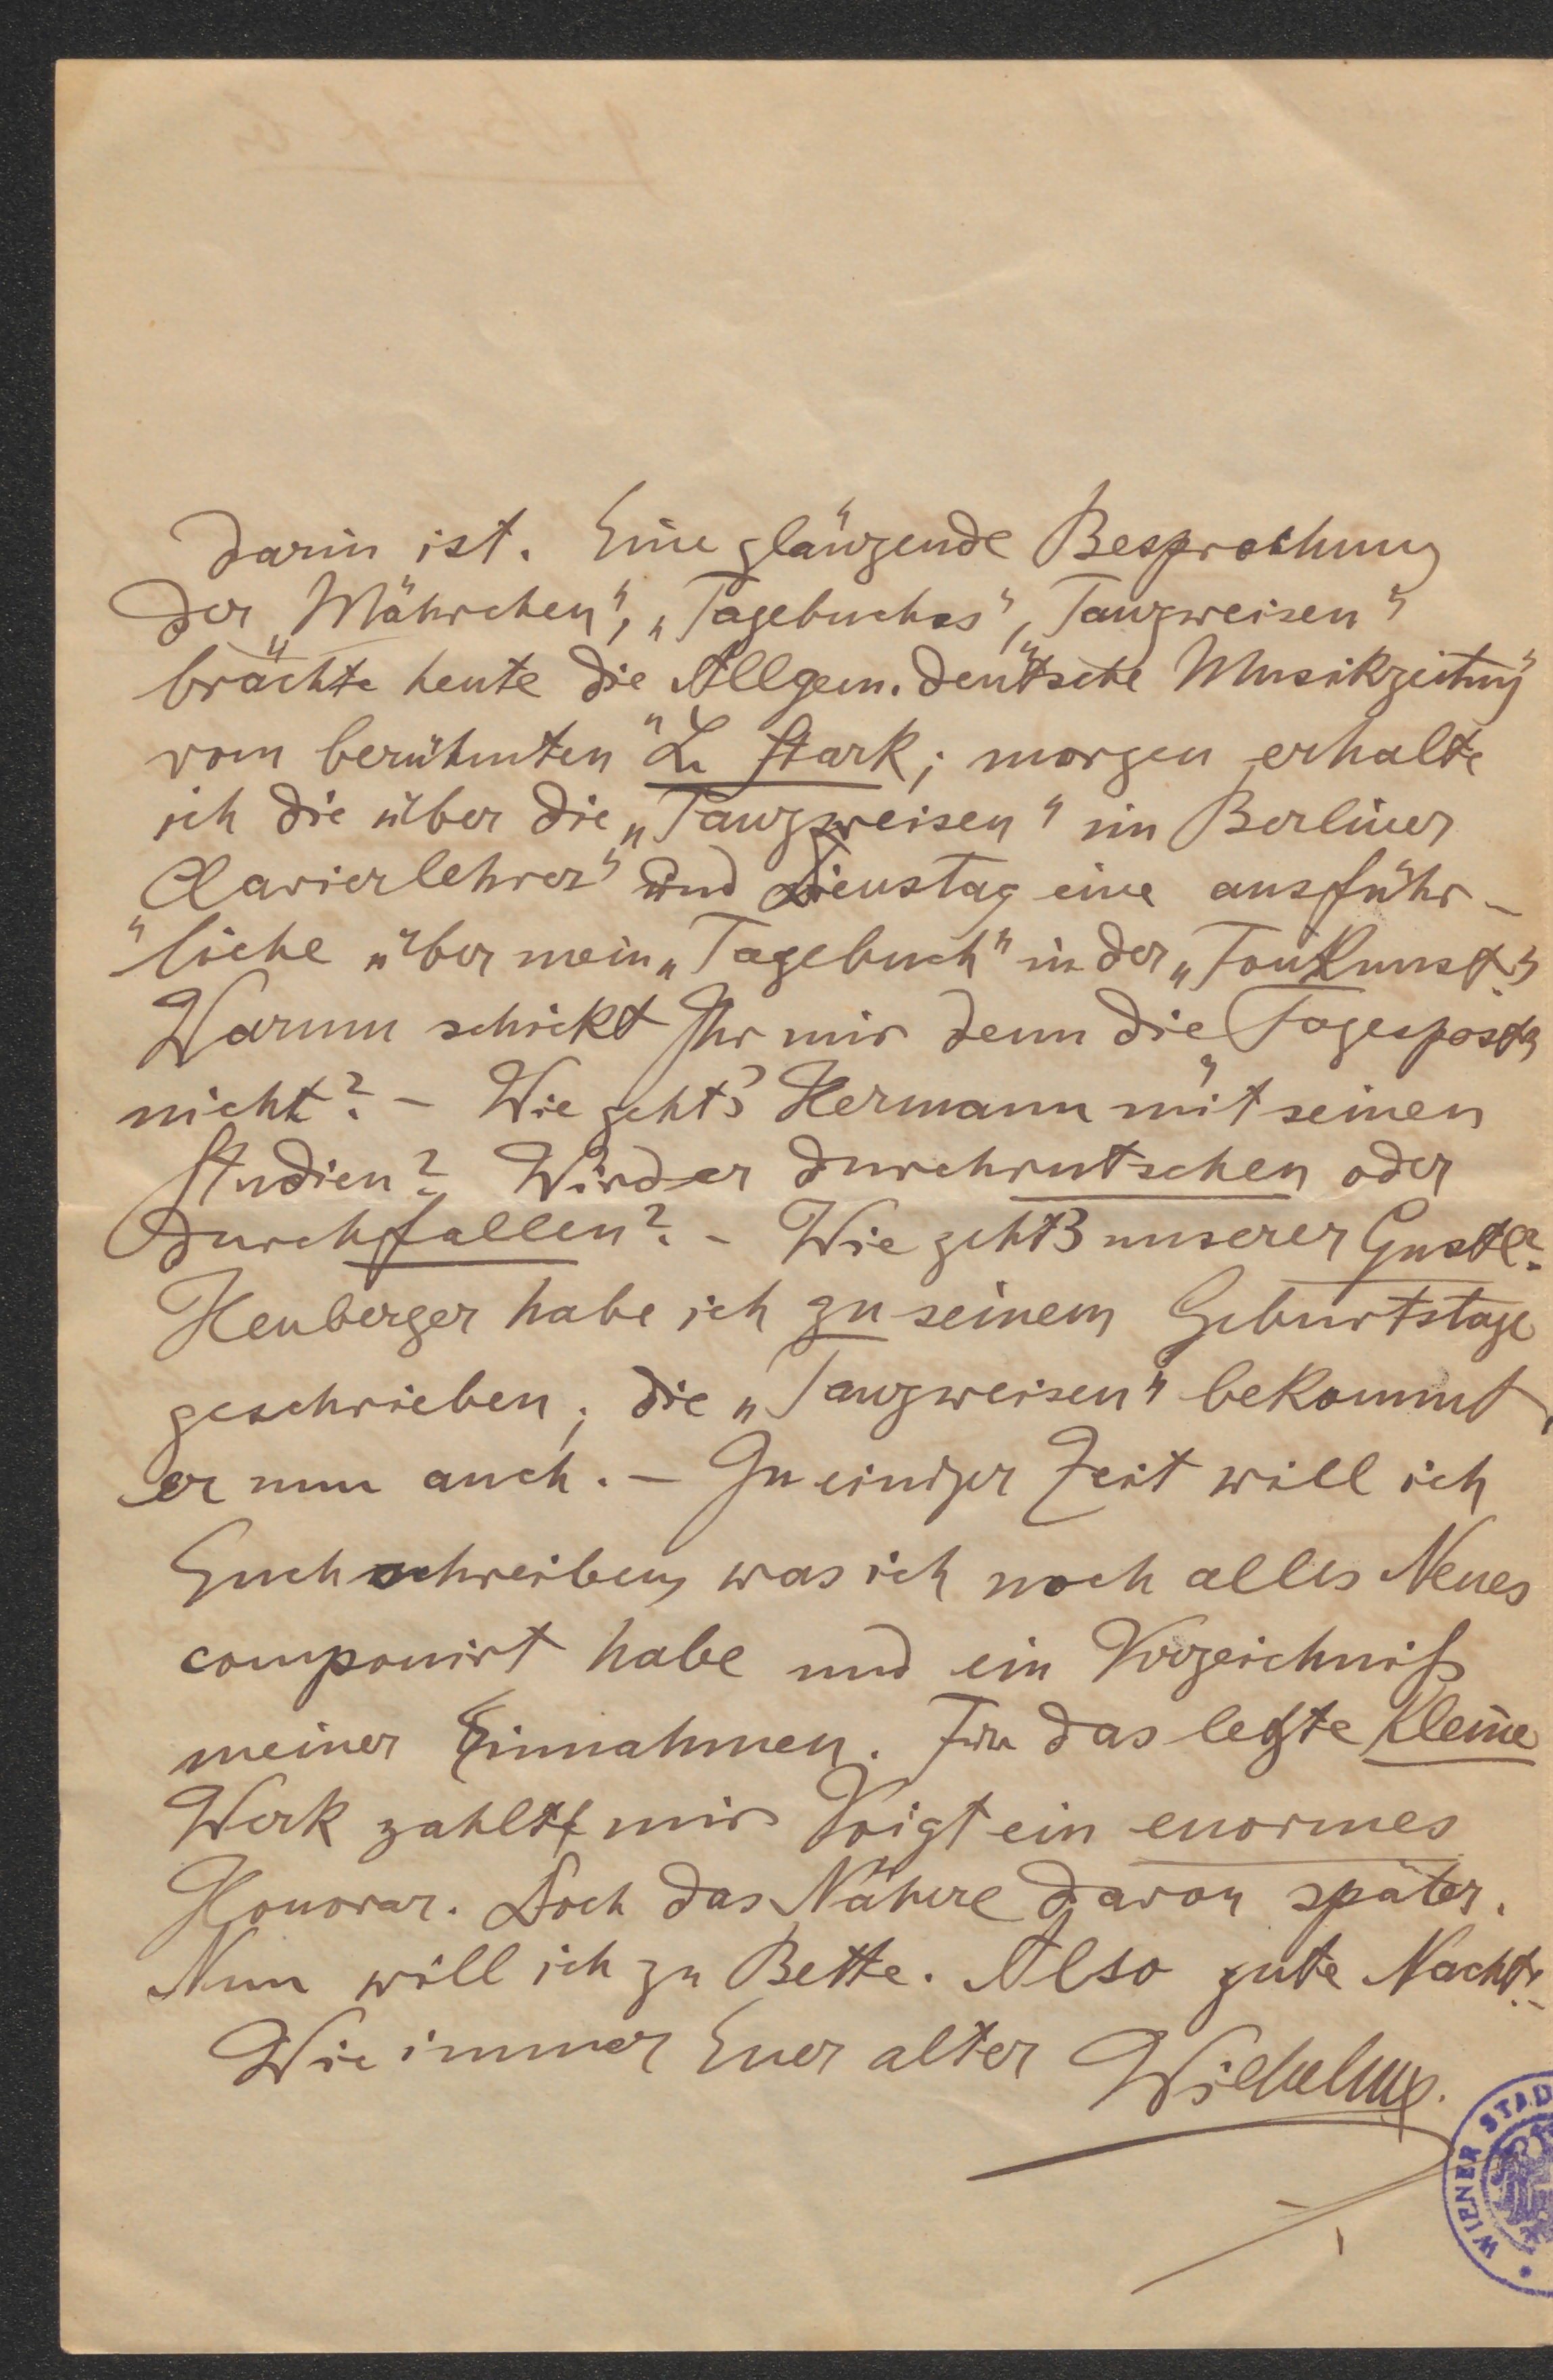 darin ist. Eine glänzende Besprechung
der „Mährchen", „Tagebuches", „Tanzweisen"
brachte heute die „Allgem. deutsche Musikzeitung"
vom berühmten L. Stark; morgen erhalte
ich die über die „Tanzweisen" im Berliner
„Clavierlehrer" und Dienstag eine ausführ-
liche über mein „Tagebuch" in der „Tonkunst".
Warum schickt Ihr mir denn die „Tagespost"
nicht? – Wie geht's Hermann mit seinen
Studien? Wird er durchrutschen oder
durchfallen? – Wie geht's unserer Gustl?
Heuberger habe ich zu seinem Geburtstage
geschrieben; die „Tanzweisen" bekommt
er nun auch. – In einiger Zeit will ich
Euch schreiben, was ich noch alles Neues
componirt habe und ein Verzeichniß
meiner Einnahmen. Für das letzte kleine
Werk zahlte mir Voigt ein enormes
Honorar. Doch das Nähere davon später.
Nun will ich zu Bette. Also gute Nacht! –
Wie immer Euer alter Wilhelm.
WIENER STAD